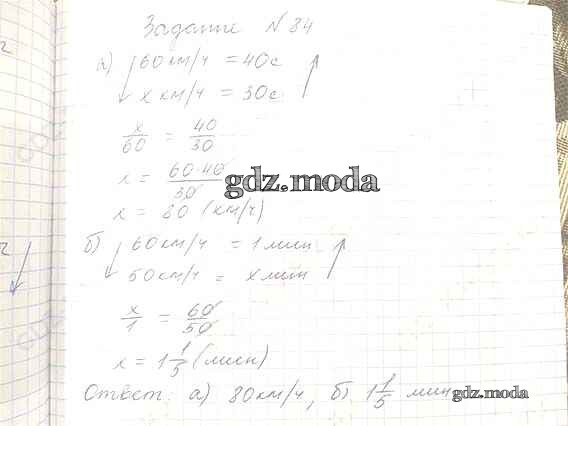 Задание № 84
а) ↓ 60 км/ч = 40 с ↑
х км/ч = 30 с
х/60 = 40/30
х = 60·40/30
gdz.moda
х = 80 (км/ч)
б) ↓ 60 км/ч = 1 мин ↑
50 км/ч = х мин
х/1 = 60/50
х = 1 1/5 (мин)
Ответ: а) 80 км/ч, б) 1 1/5 мин
gdz.moda